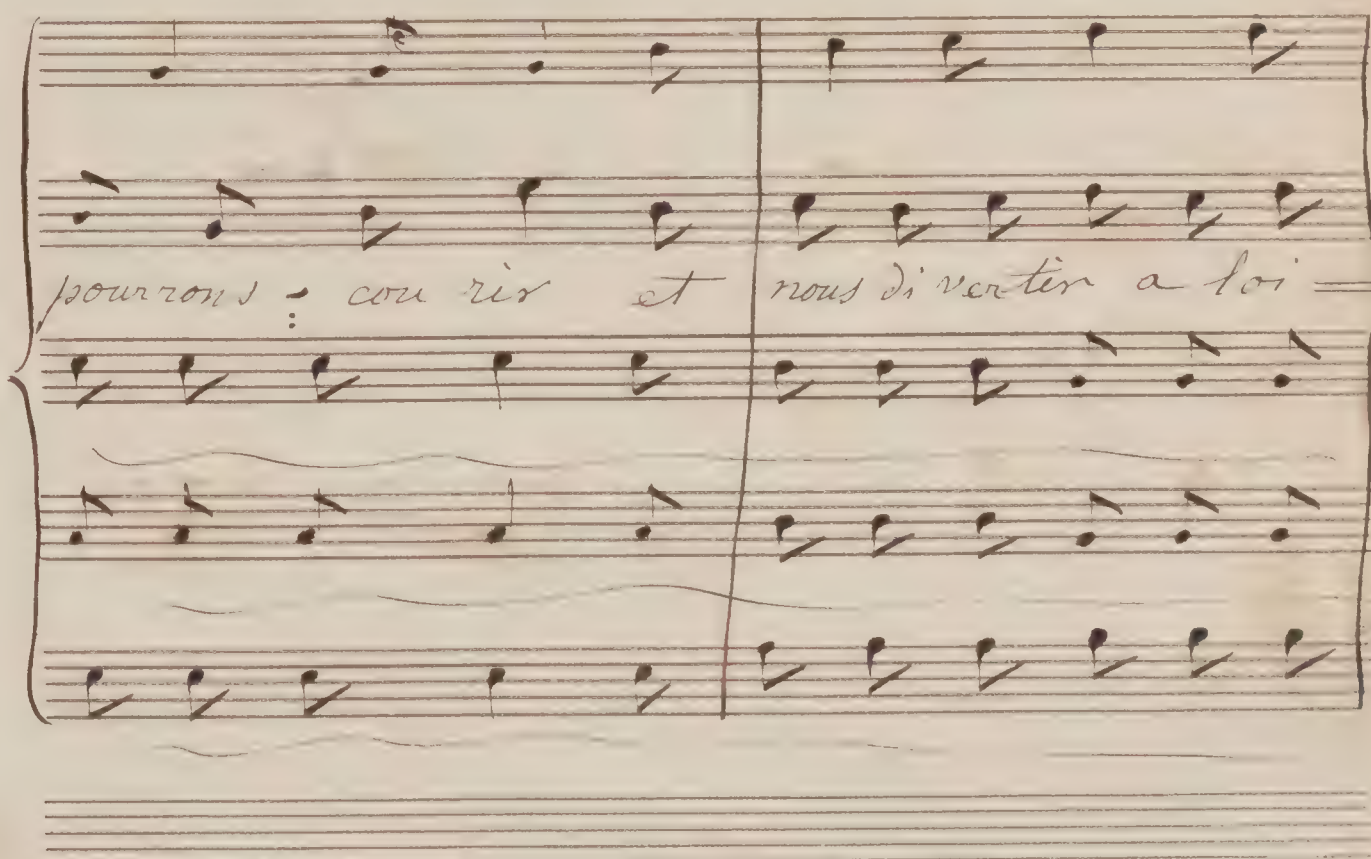 pourrons : cou rir et nous di ver tir a loi =